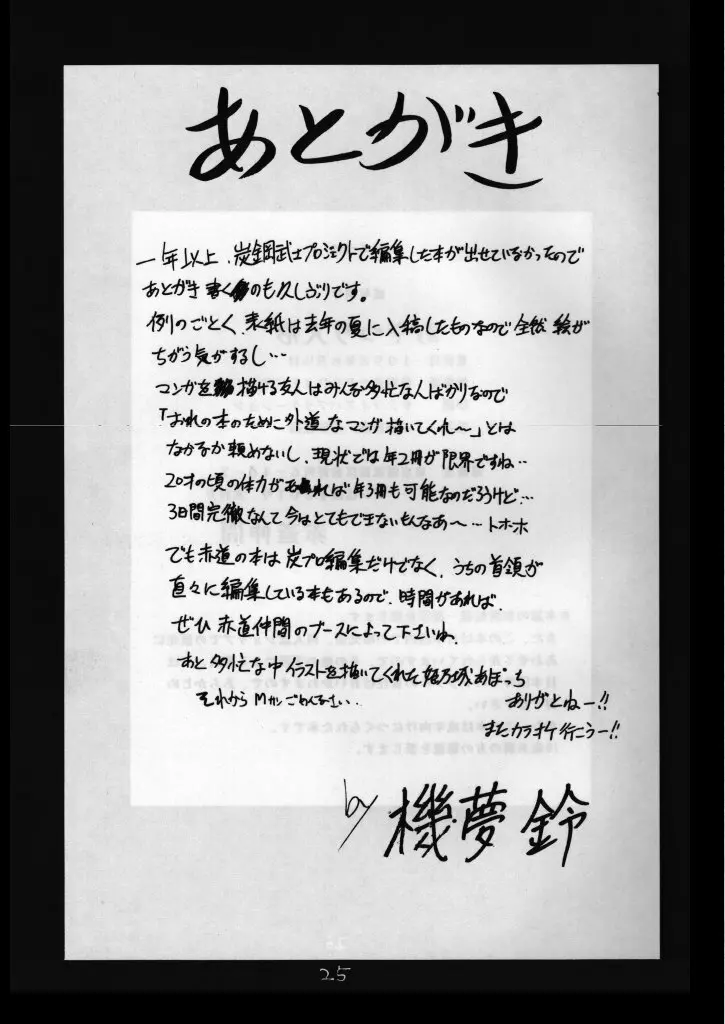 あとがき
一年以上、炭鋼武士プロジェクトで編集した本が出せていなかったので
あとがき書くのも久しぶりです。
例のごとく、表紙は去年の夏に入稿したものなので全然 絵が
ちがう気がするし…
マンガを描ける友人はみんな多忙な人ばかりなので
「おれの本のために外道なマンガ描いてくれ〜」とは
なかなか頼めないし、現状では年2冊が限界ですね…
20才の頃の体力があれば年3冊も可能なのだろうけど…
3日間完徹なんて今はとてもできないもんなあ〜…トホホ
でも赤道の本は炭プロ編集だけでなく、うちの首領が
直々に編集している本もあるので、時間があれば、
ぜひ 赤道仲間のブースによって下さいね。
あと 多忙な中イラストを描いてくれた 城 あぽっち
ありがとねー!!
それから Mカン ごめんなさい.
またカラオケ行こうー!!
by 機夢鈴
25